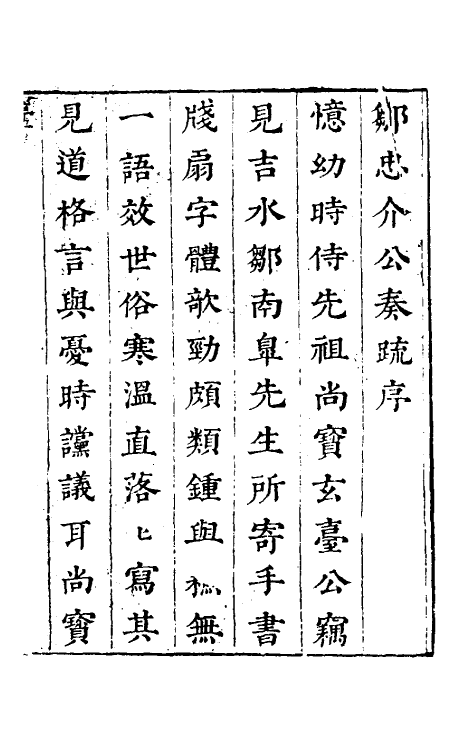 鄒忠介公奏疏序
憶幼時侍先祖尚寶玄臺公竊
見吉水鄒南臯先生所寄手書
牋扇字體欹勁頗類鍾與 無
一語效世俗寒溫直落匕寫其
見道格言與憂時讜議耳尚寶